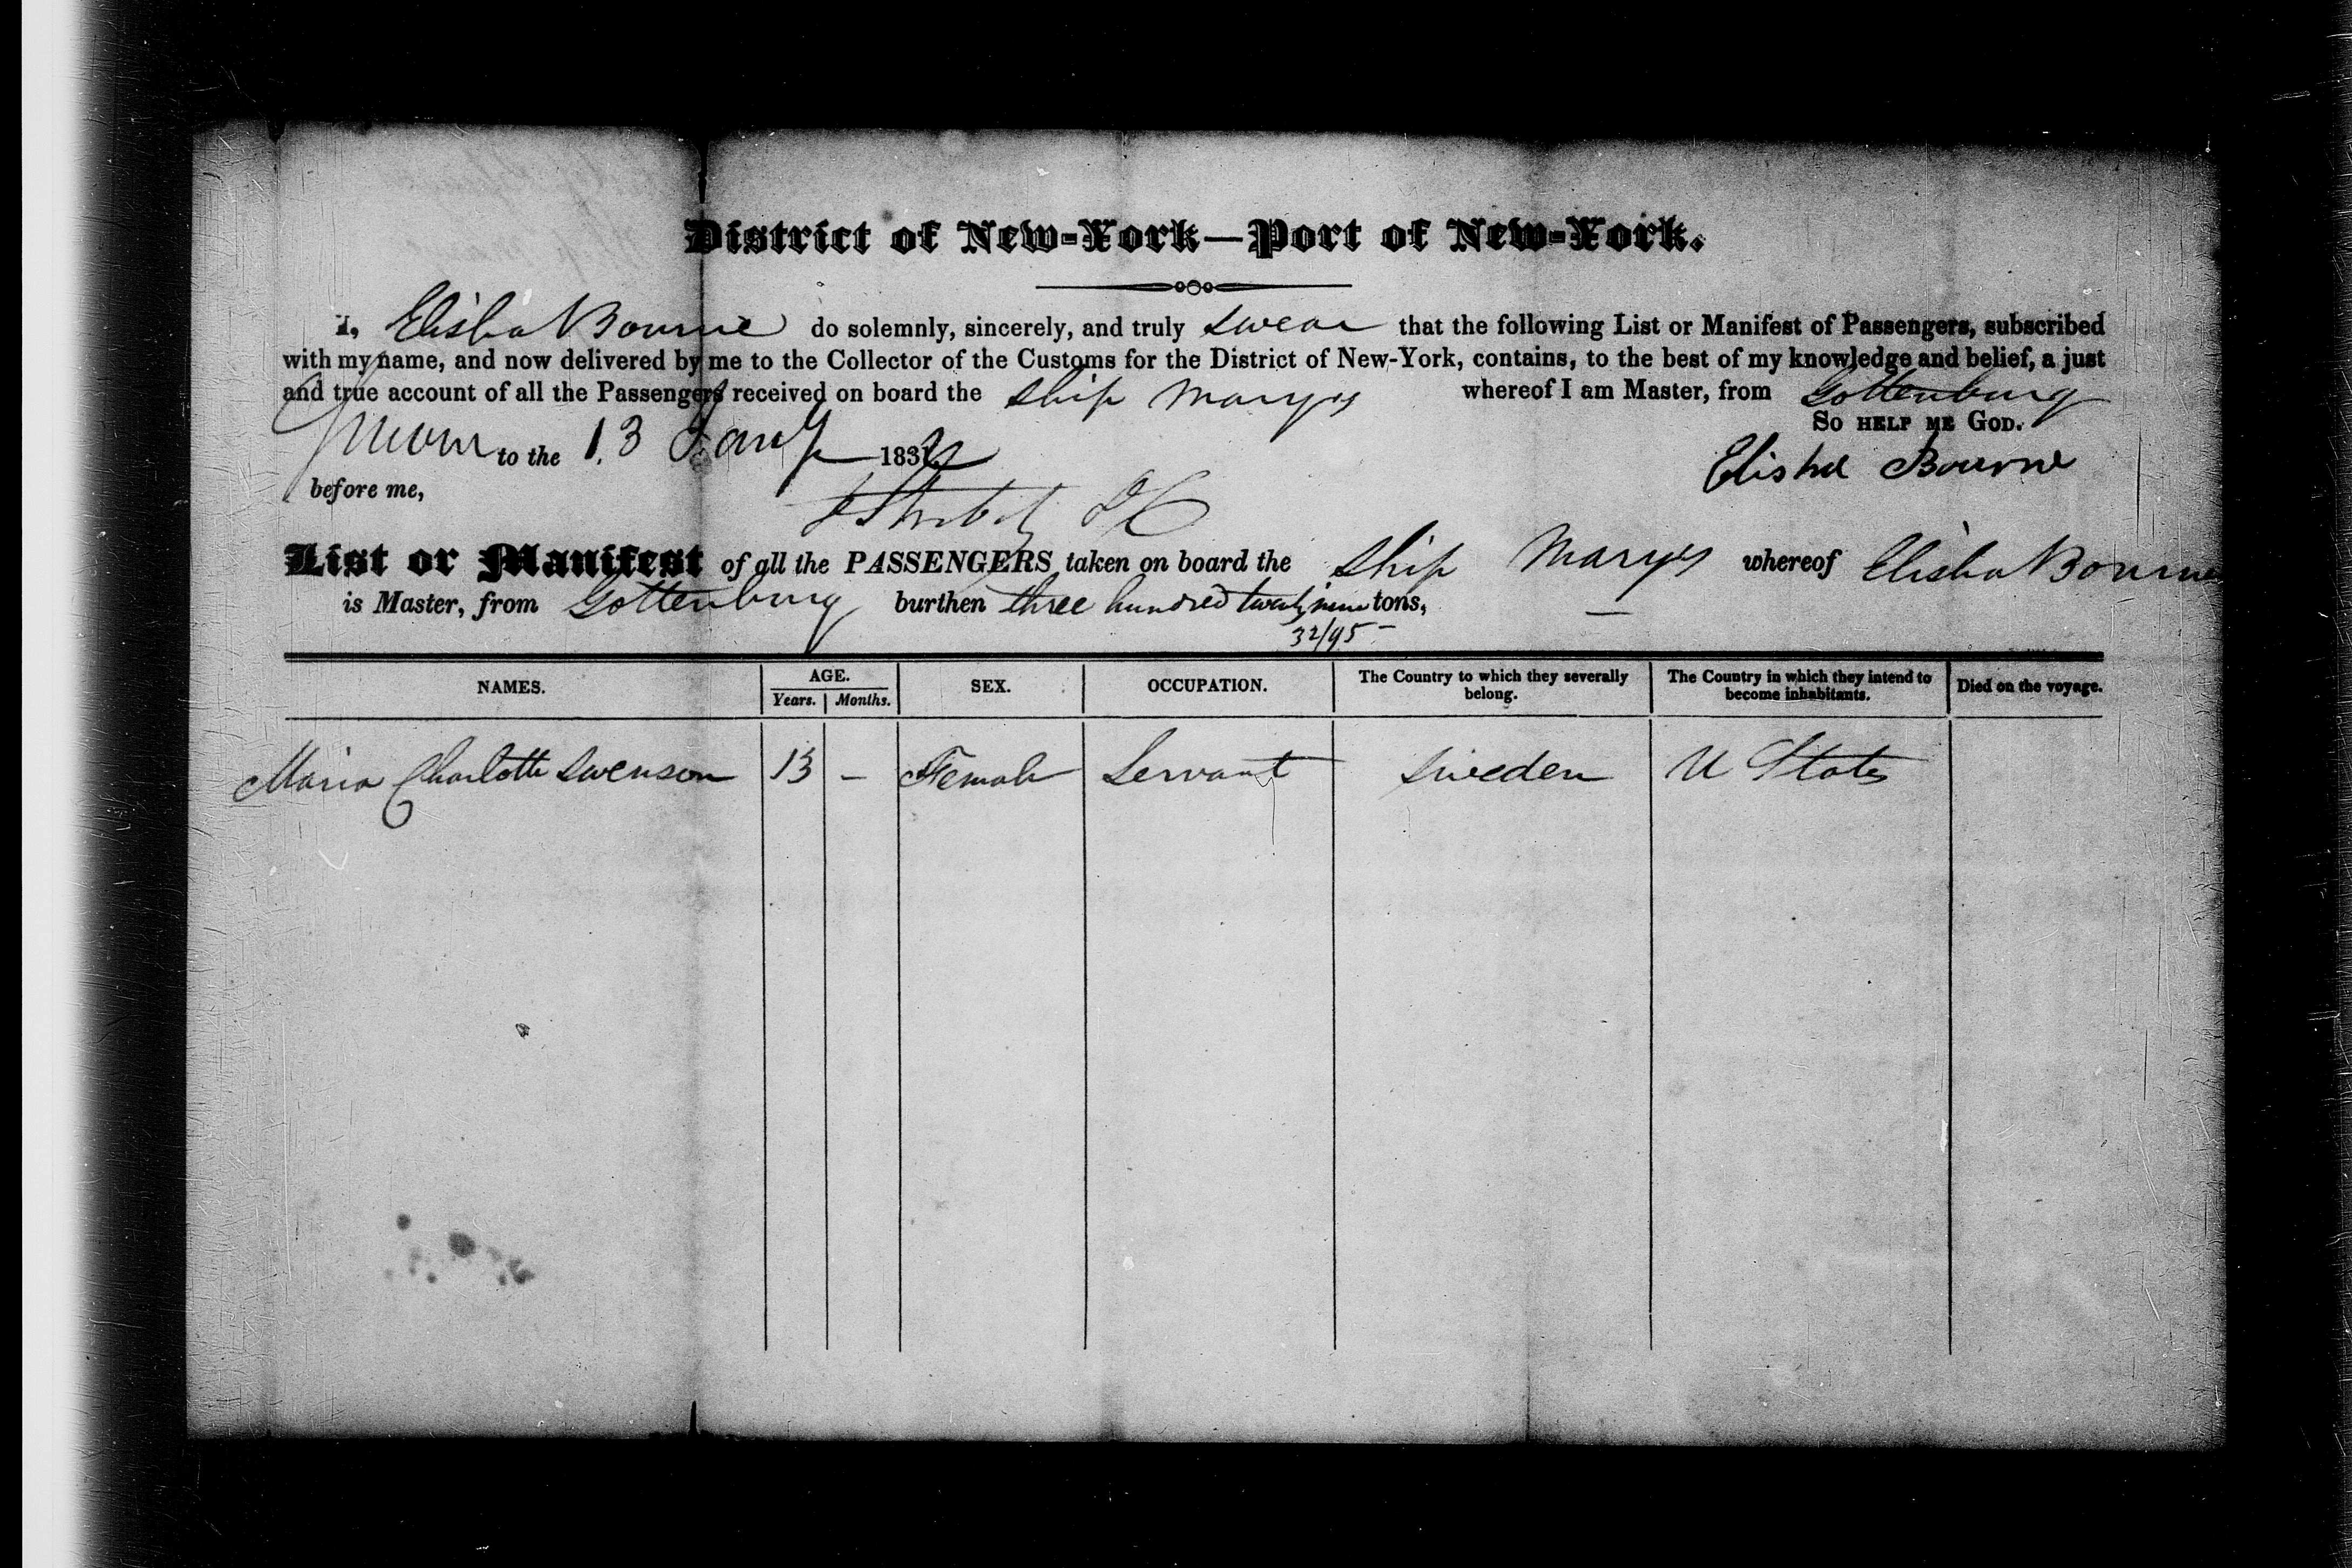 District of New-York—Port of New-York.
I, Elisha Bourne do solemnly, sincerely, and truly swear that the following List or Manifest of Passengers, subscribed
with my name, and now delivered by me to the Collector of the Customs for the District of New-York, contains, to the best of my knowledge and belief, a just
and true account of all the Passengers received on board the Ship Marys whereof I am Master, from Gottenburg
So HELP ME GOD.
Sworn to the 13 Jany 183
before me,
Elisha Bourne
List or Manifest of all the PASSENGERS taken on board the Ship Marys whereof Elisha Bourne
is Master, from Gottenburg burthen three hundred twenty nine tons,
32/95
NAMES. AGE. SEX. OCCUPATION. The Country to which they severally belong. The Country in which they intend to become inhabitants. Died on the voyage.
Years. Months.
Maria Charlotte Swenson 13 — Female Servant Sweden U States